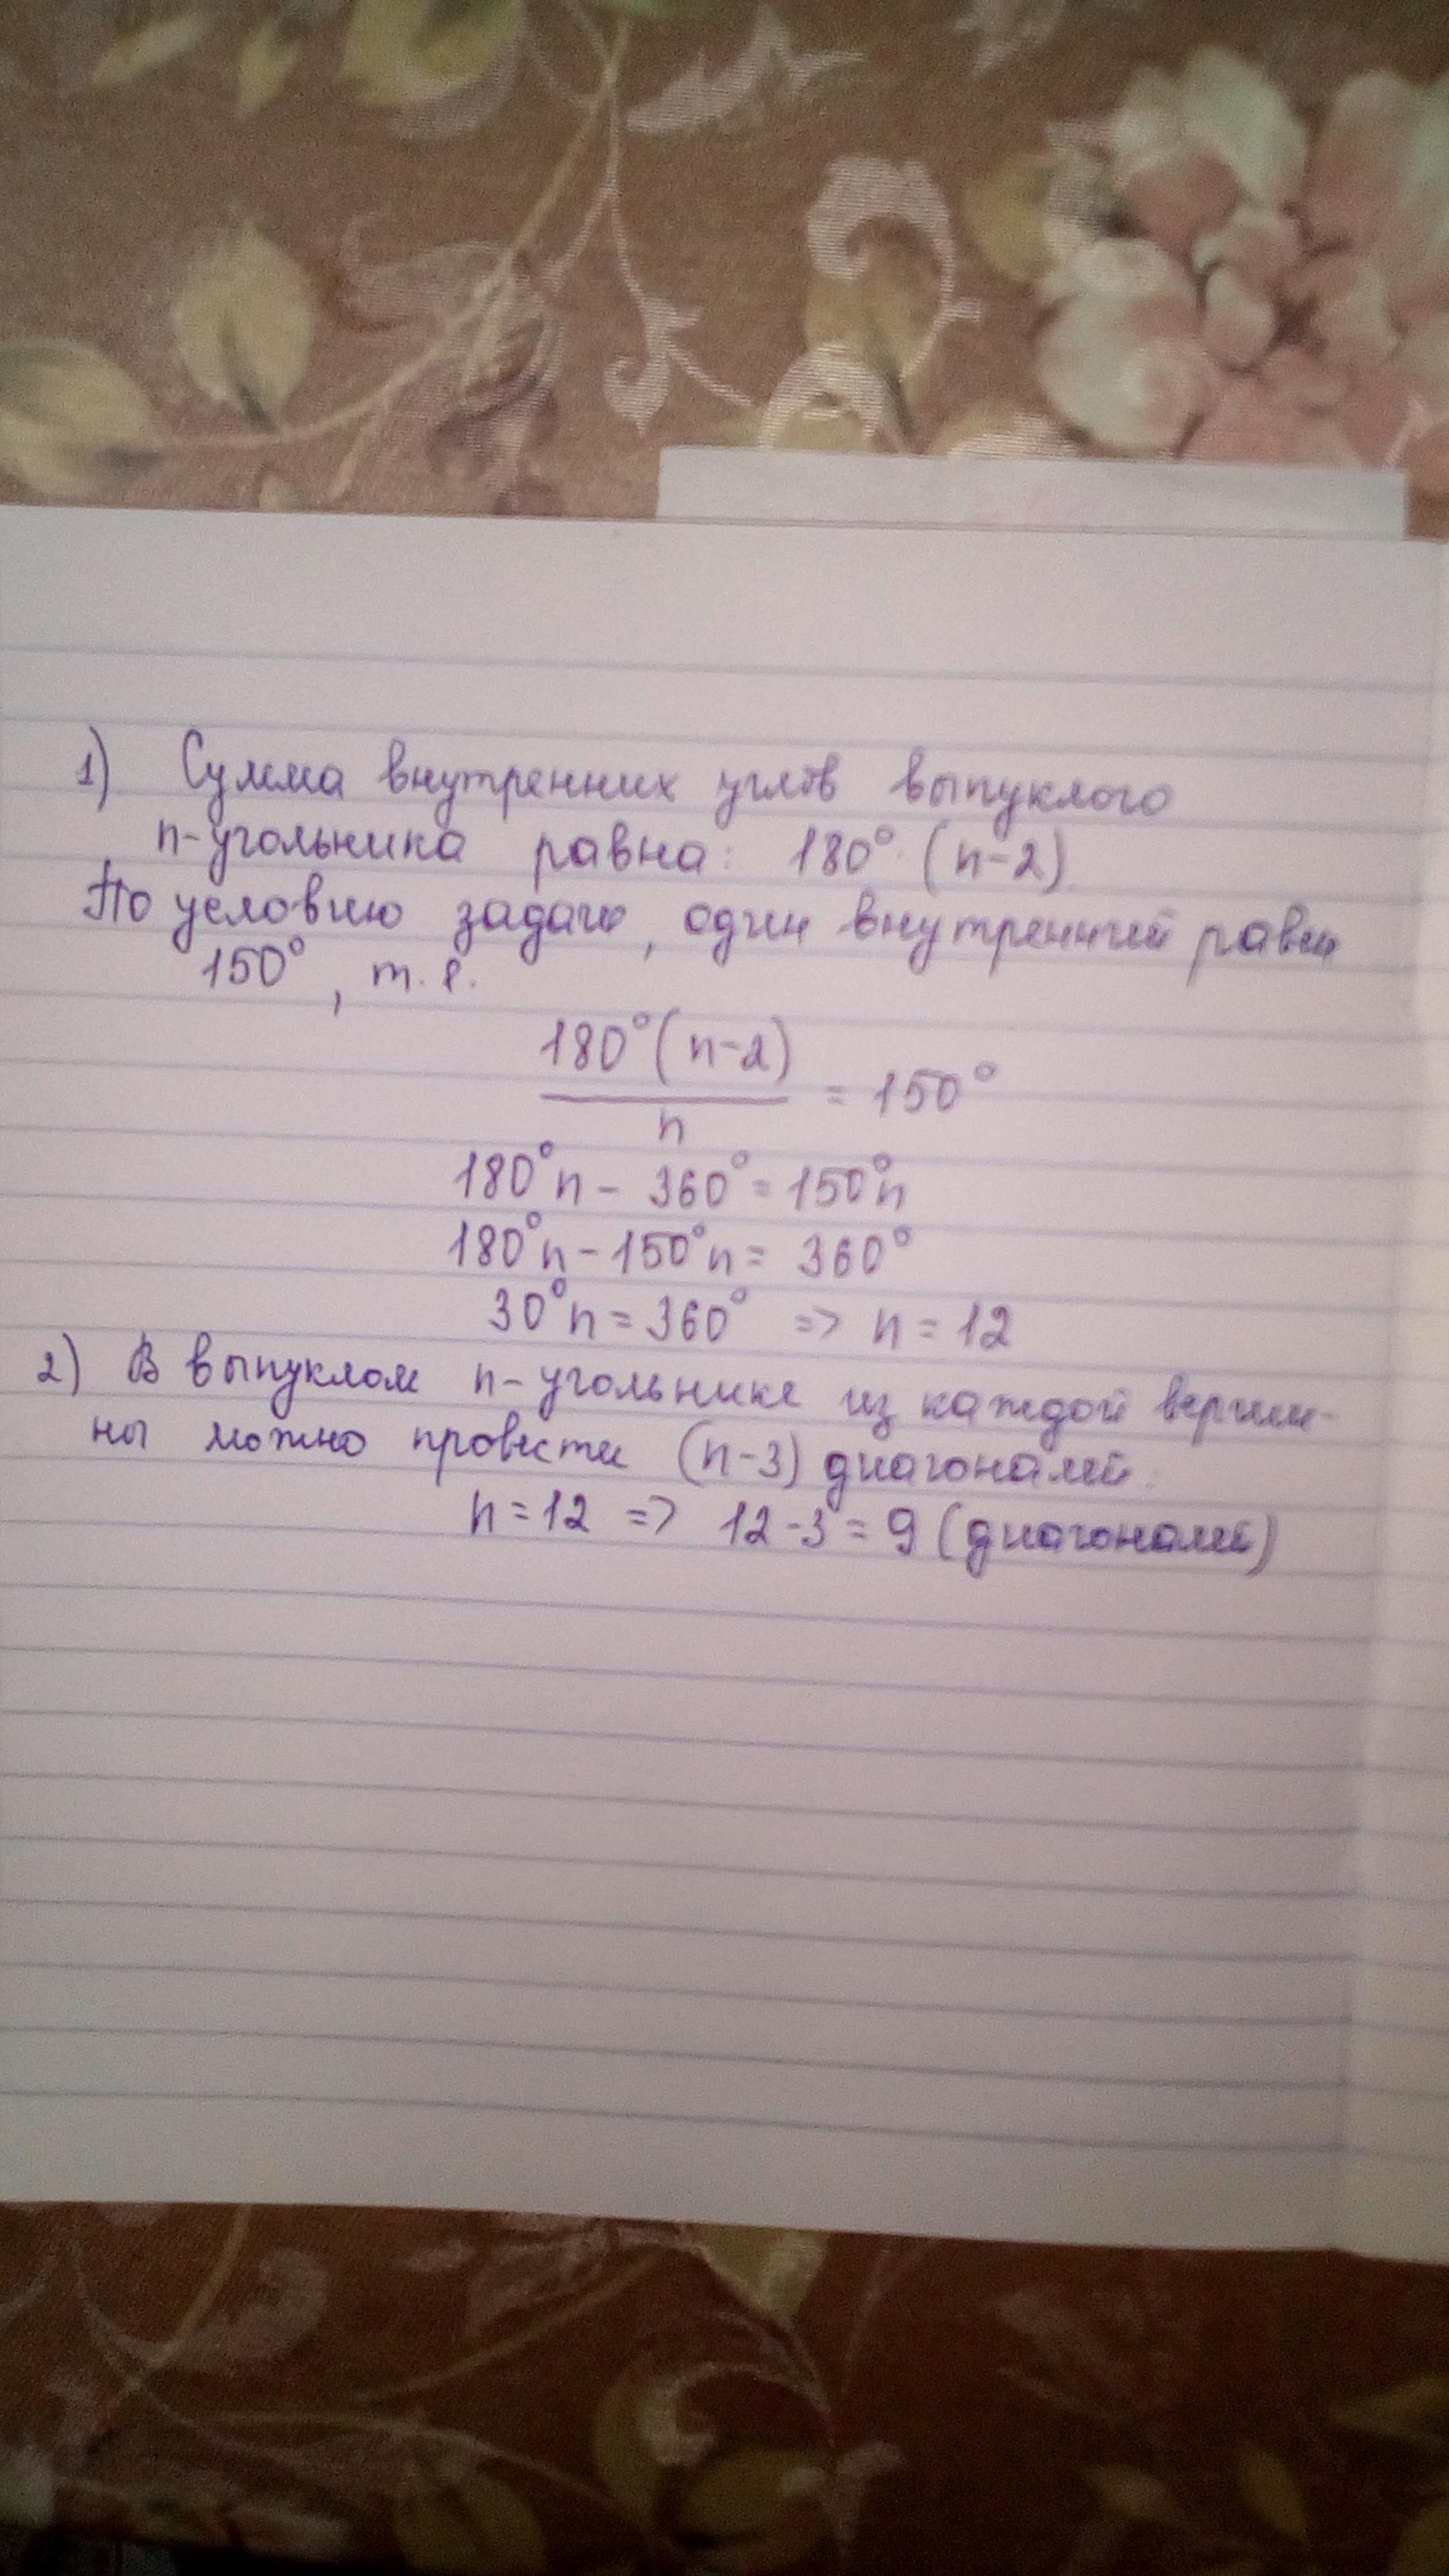 1) Сумма внутренних углов выпуклого
n-угольника равна: 180°·(n-2)
По условию задачи, один внутренний равен
150°, т.е.
180°(n-2)
/ n = 150°
180°n - 360° = 150°n
180°n - 150°n = 360°
30°n = 360° => n = 12
2) В выпуклом n-угольнике из каждой верши-
ны можно провести (n-3) диагоналей.
n = 12 => 12-3 = 9 (диагоналей)